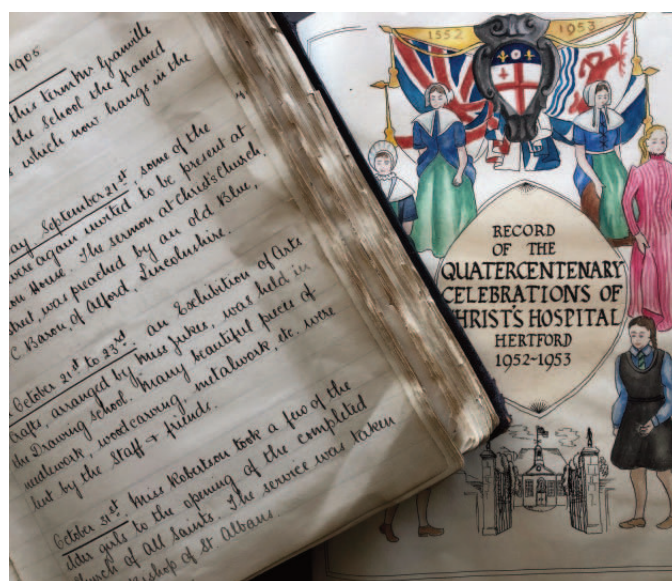 1905
this term Mr Granville
the school the framed
which now hangs in the
September 21st, some of the
were again invited to be present at
House. The sermon at Christ Church,
street, was preached by an old Blue,
C Baron, of Alford, Lincolnshire.
October 21st to 23rd. an Exhibition of Arts
Crafts, arranged by Miss Jukes, was held in
the Drawing School. Many beautiful pieces of
needlework, woodcarving, metalwork, etc. were
lent by the Staff & friends.
October 31st. Miss Robertson took a few of the
elder girls to the opening of the completed
Church of All Saints. The service was taken
Bishop of St Albans.
1552 1953
RECORD
OF THE
QUATERCENTENARY
CELEBRATIONS OF
CHRIST'S HOSPITAL
HERTFORD
1952-1953